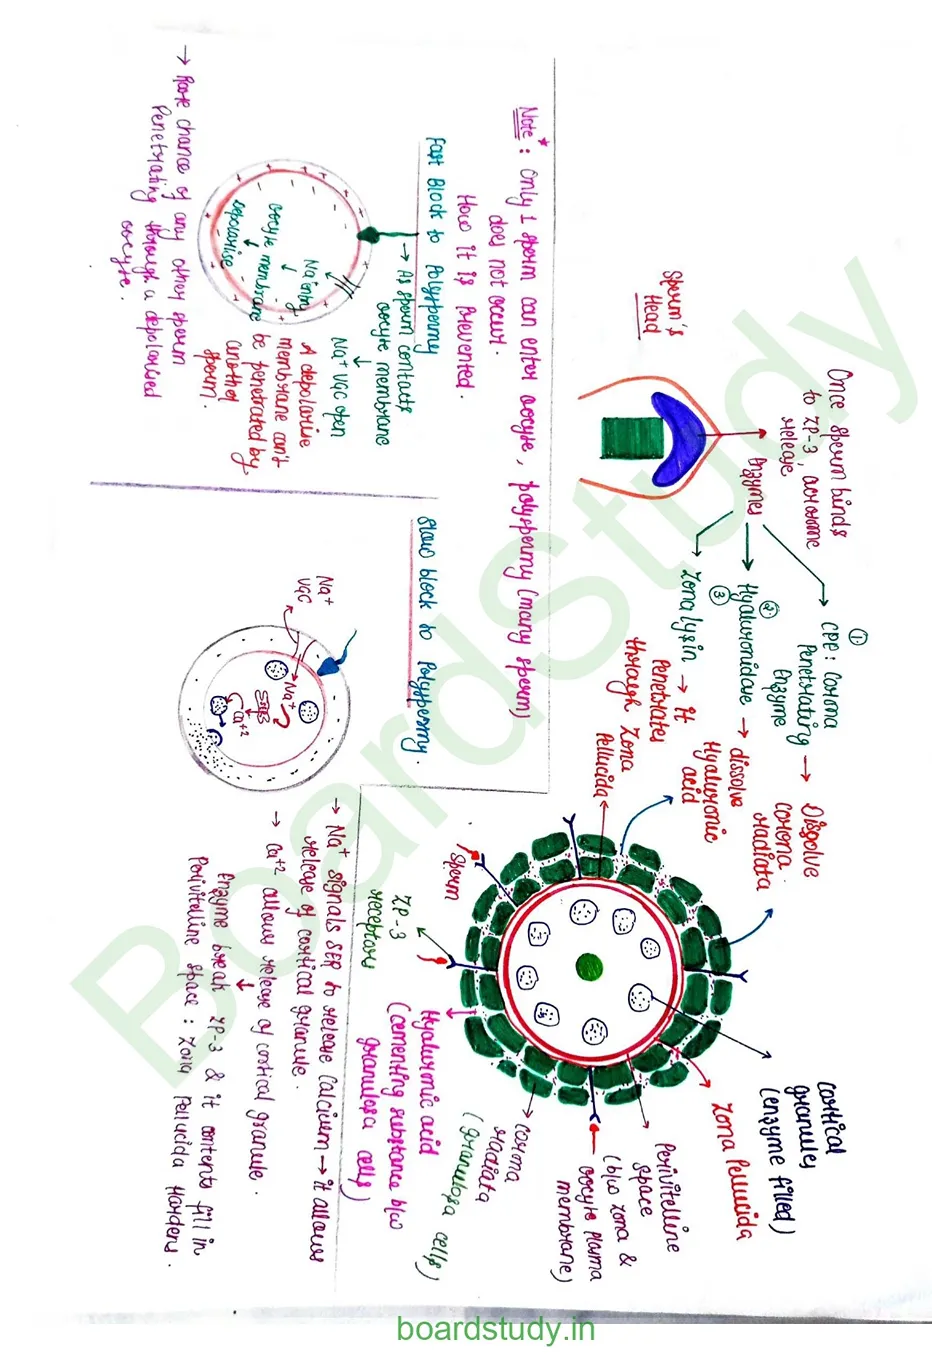 Sperm's
Head
Once sperm binds
to ZP-3, acrosome
release,
Enzymes
① CPE: Corona
Penetrating
Enzyme
→ Dissolve
corona
radiata
② Hyaluronidase → dissolve
Hyaluronic
acid
③ Zona lysin → it
Penetrates
through Zona
Pellucida
Sperm
ZP-3
receptors
Hyaluronic acid
(cementing substance b/w
granulosa cells)
corona
radiata
(granulosa cells)
Perivitelline
space
(b/w zona &
oocyte plasma
membrane)
Zona Pellucida
cortical
granules
(enzyme filled)
Note*: Only 1 sperm can enter oocyte, polyspermy (many sperm)
does not occur.
How it is prevented.
Fast Block to Polyspermy
→ As sperm contacts
oocyte membrane
↓
Na+ VGC open
Na+ entry
↓
oocyte membrane
↓
Depolarise
A depolarise
membrane can't
be penetrated by
another
sperm.
→ Rare chance of any other sperm
Penetrating through a depolarised
oocyte.
Slow block to Polyspermy.
Na+
VGC
Na+
SER
Ca+2
→ Na+ signals SER to release Calcium → it allows
release of cortical granule.
→ Ca+2 allows release of cortical granule.
↓
Enzyme break ZP-3 & it contents fill in
Perivitelline space: Zona Pellucida Hardens.
BoardStudy
boardstudy.in